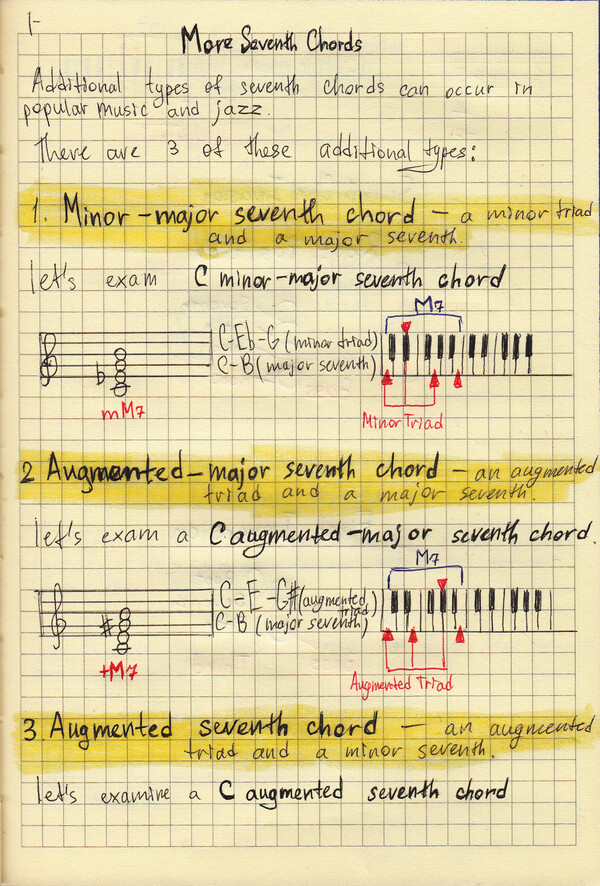 1-
More Seventh Chords
Additional types of seventh chords can occur in
popular music and jazz.
There are 3 of these additional types:
1. Minor-major seventh chord - a minor triad
and a major seventh.
let's exam C minor-major seventh chord
M7
C-Eb-G (minor triad)
C-B (major seventh)
b
mM7
Minor Triad
2 Augmented-major seventh chord - an augmented
triad and a major seventh.
let's exam a C augmented-major seventh chord.
M7
C-E-G# (augmented
triad)
C-B (major seventh)
#
+M7
Augmented Triad
3. Augmented seventh chord - an augmented
triad and a minor seventh.
let's examine a C augmented seventh chord